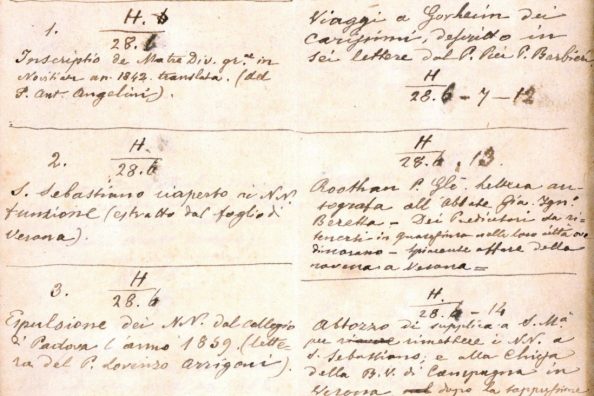 1. H. 6
28. 6
Inscriptio de Matre Div. gr.æ in
Novitiatu an. 1842. translata. (del
P. Ant. Angelini).
2. H.
28. 6
S. Sebastiano riaperto ai NN.
funzione (estratto dal foglio di
Verona).
3. H
28. 6
Espulsione dei NN. dal collegio
di Padova l'anno 1859 (lette-
ra del P. Lorenzo Arrigoni).
Viaggi a Gorheim dei
carissimi, descritto in
sei lettere dal P. Pier P. Barbieri
H
28. 6 - 7 - 12
H
28. 6, 13.
Roothan P. Gle. Lettera au-
tografa all'Abbate Gia. Ign.
Beretta - Dei Predicatori da ri-
tenersi in quaresima nelle loro città ove
dimorano - spinente affare della
novena a Verona =
H.
28. 6 - 14
Abbozzo di supplica a S. Mà
per rimettere i NN. a
S. Sebastiano; e alla Chiesa
della B. V. di Campagna in
Verona dopo la soppressione